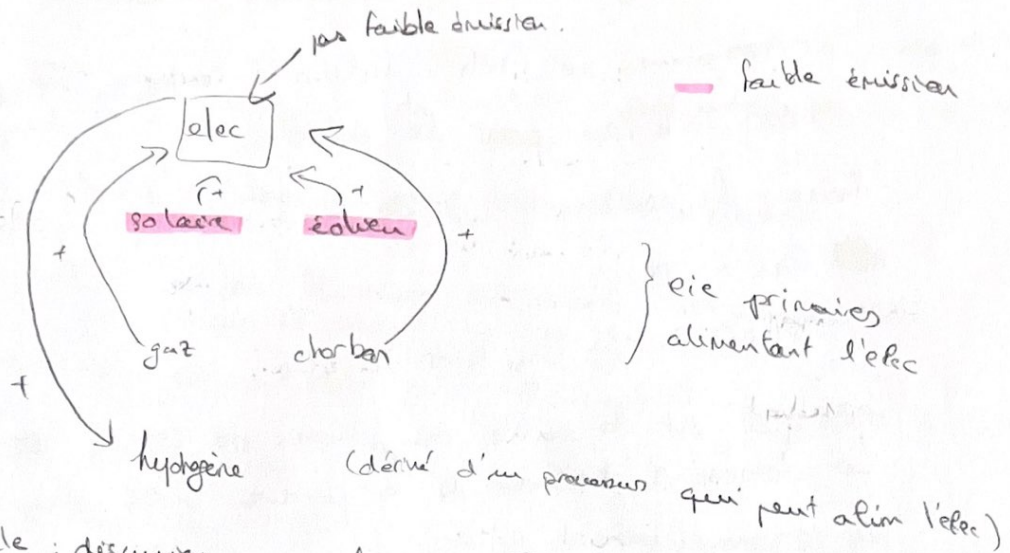 pas faible émission.
faible émission
elec
+
+
solaire
éolien
+
+
gaz
charbon
eie primaires
alimentant l'elec
+
hydrogène
(dérivé d'un processus qui peut alim l'elec)